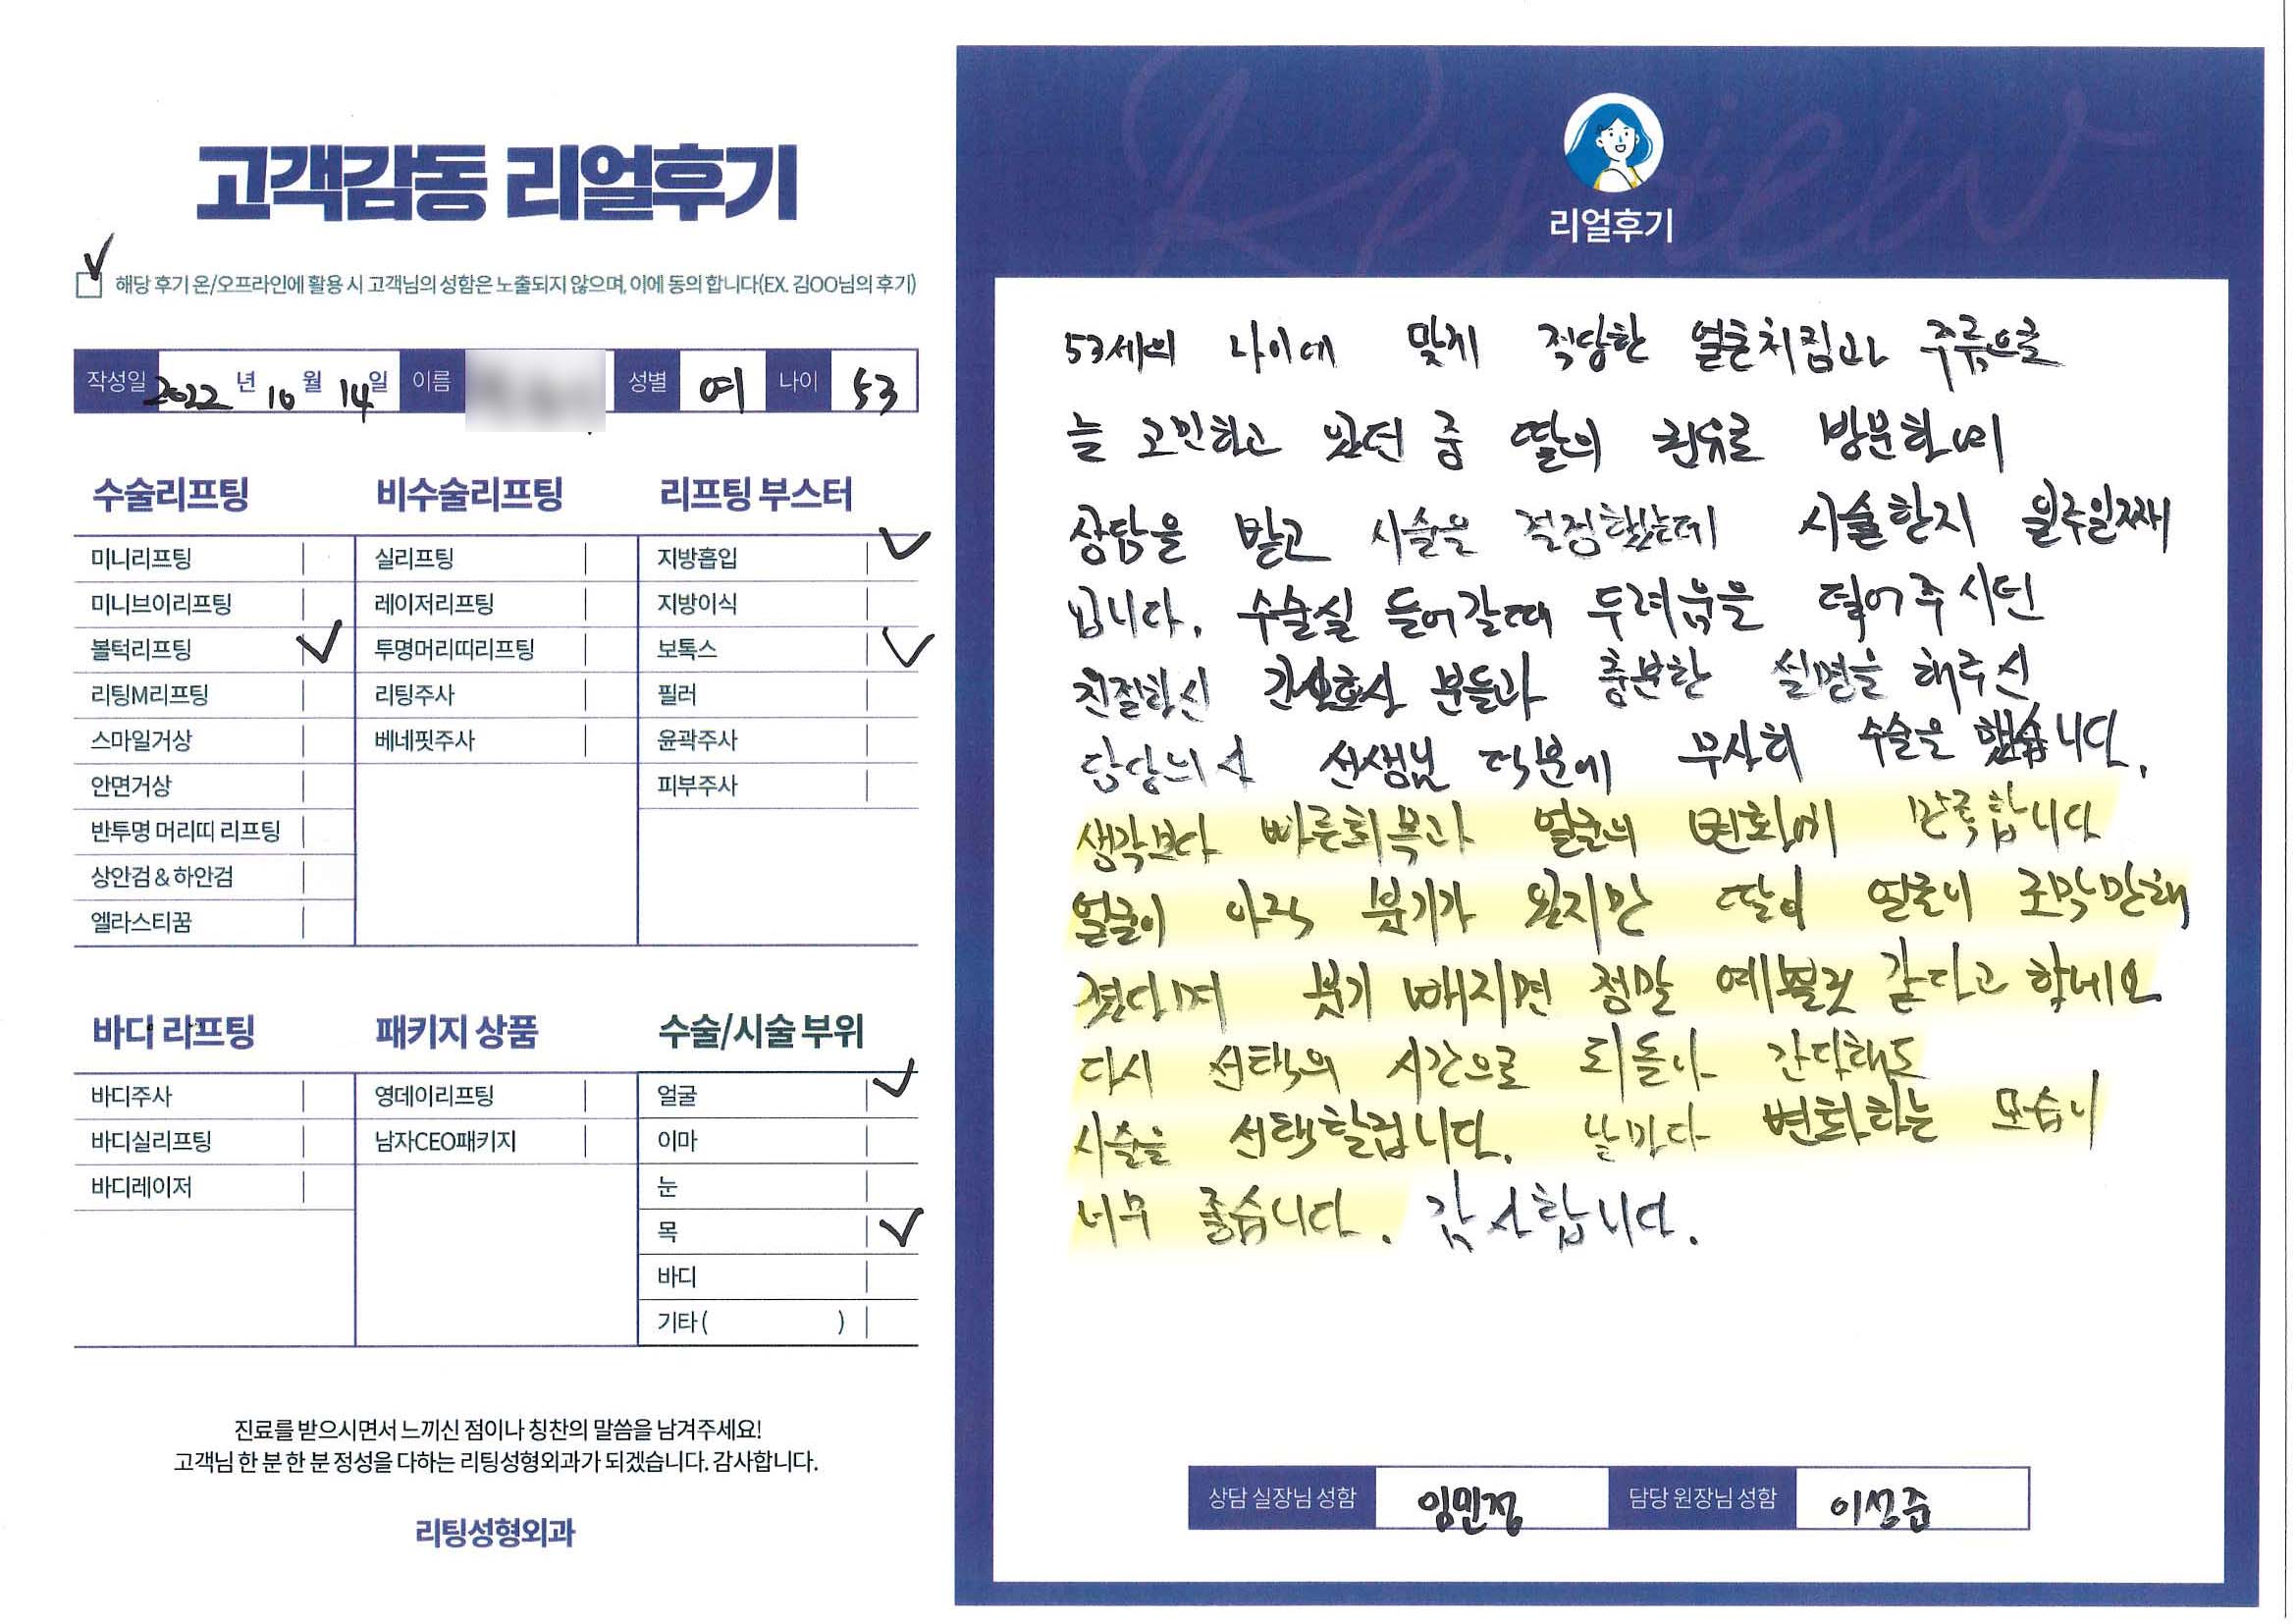 고객감동 리얼후기
해당 후기 온/오프라인에 활용 시 고객님의 성함은 노출되지 않으며, 이에 동의 합니다(EX. 김OO님의 후기)
작성일 2022 년 10 월 14일 이름 성별 여 나이 53
수술리프팅
미니리프팅
미니브이리프팅
볼턱리프팅
리팅M리프팅
스마일거상
안면거상
반투명 머리띠 리프팅
상안검 & 하안검
엘라스티꿈
비수술리프팅
실리프팅
레이저리프팅
투명머리띠리프팅
리팅주사
베네핏주사
리프팅 부스터
지방흡입
지방이식
보톡스
필러
윤곽주사
피부주사
바디 리프팅
바디주사
바디실리프팅
바디레이저
패키지 상품
영데이리프팅
남자CEO패키지
수술/시술 부위
얼굴
이마
눈
목
바디
기타 ( )
진료를 받으시면서 느끼신 점이나 칭찬의 말씀을 남겨주세요!
고객님 한 분 한 분 정성을 다하는 리팅성형외과가 되겠습니다. 감사합니다.
리팅성형외과
Review
리얼후기
53세의 나이에 맞게 적당한 얼굴처짐과 주름으로
늘 고민하고 있던 중 딸의 권유로 방문하여
상담을 받고 시술을 결정했는데 시술한지 일주일째
입니다. 수술실 들어갈때 두려움을 덜어주시던
친절하신 간호사 분들과 충분한 설명을 해주신
담당의사 선생님 덕분에 무사히 수술을 했습니다.
생각보다 빠른회복과 얼굴의 변화에 만족합니다
얼굴이 아직 붓기가 있지만 딸이 얼굴이 조막만해
졌다며 붓기 빠지면 정말 예쁠것 같다고 하네요
다시 선택의 시간으로 되돌아 간다해도
시술을 선택할겁니다. 날마다 변화하는 모습이
너무 좋습니다. 감사합니다.
상담 실장님 성함 임민정 담당 원장님 성함 이성준